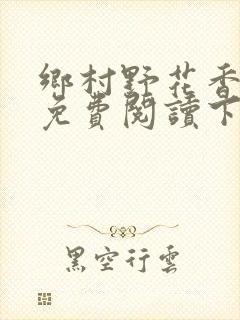 鄉村野花香
免費閱讀下
黑空行雲